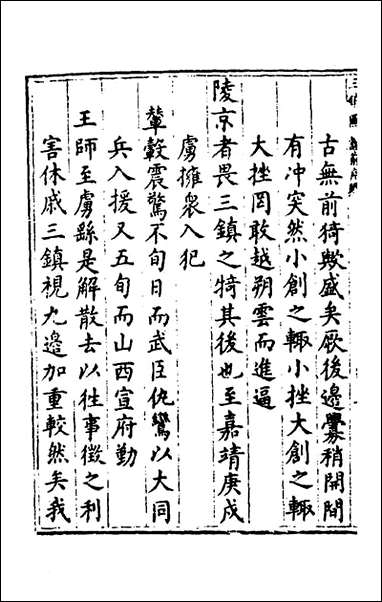 古無前猗歟盛矣厥後邊釁稍開間
有冲突然小創之輙小挫大創之輙
大挫罔敢越朔雲而進逼
陵京者畏三鎮之犄其後也至嘉靖庚戌
虜擁衆入犯
輦轂震驚不旬日而武臣仇鸞以大同
兵入援又五旬而山西宣府勤
王師至虜繇是解散去以徃事徵之利
害休戚三鎮視九邊加重較然矣我